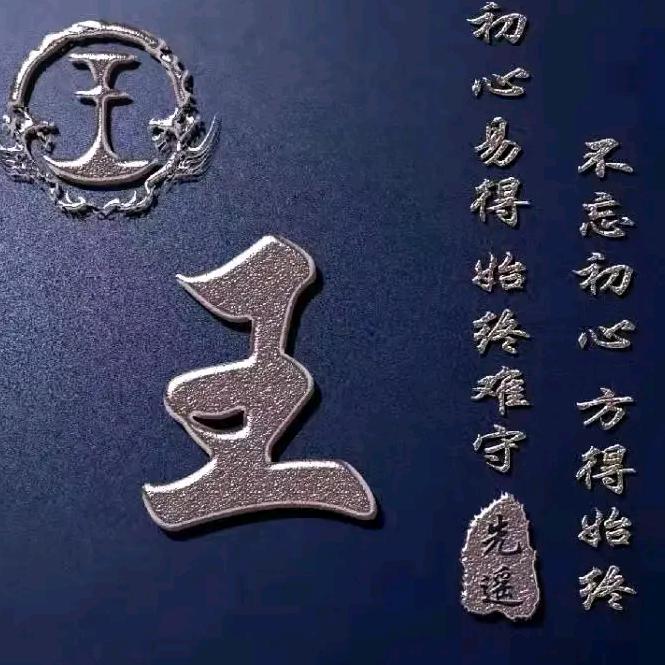 不忘初心 方得始终
初心易得 始终难守
先遥
王
王